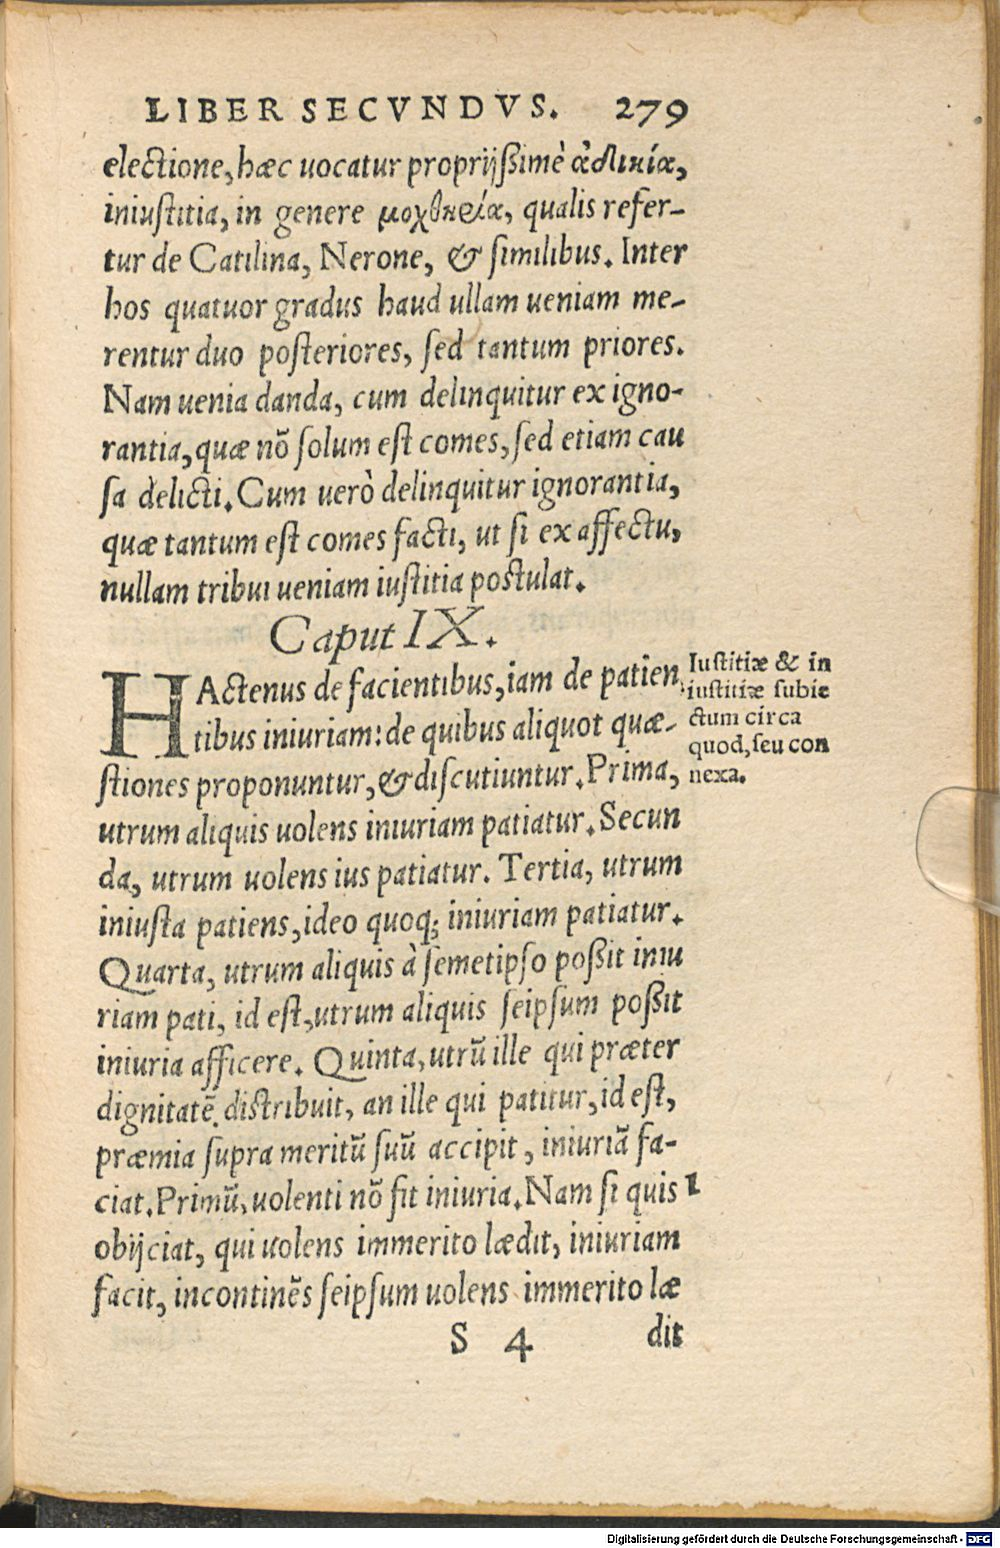 LIBER SECVNDVS. 279
electione, hæc uocatur proprijßimè ἀδικία,
iniustitia, in genere μοχθηρία, qualis refer-
tur de Catilina, Nerone, & similibus. Inter
hos quatuor gradus haud ullam ueniam me-
rentur duo posteriores, sed tantum priores.
Nam uenia danda, cum delinquitur ex igno-
rantia, quæ nõ solum est comes, sed etiam cau
sa delicti. Cum uerò delinquitur ignorantia,
quæ tantum est comes facti, ut si ex affectu,
nullam tribui ueniam iustitia postulat.
Caput IX.
HActenus de facientibus, iam de patien
tibus iniuriam: de quibus aliquot quæ-
stiones proponuntur, & discutiuntur. Prima,
utrum aliquis uolens iniuriam patiatur. Secun
da, utrum uolens ius patiatur. Tertia, utrum
iniusta patiens, ideo quoq; iniuriam patiatur.
Quarta, utrum aliquis à semetipso poßit iniu
riam pati, id est, utrum aliquis seipsum poßit
iniuria afficere. Quinta, utrũ ille qui præter
dignitatẽ distribuit, an ille qui patitur, id est,
præmia supra meritũ suũ accipit, iniuriã fa-
ciat. Primũ, uolenti nõ fit iniuria. Nam si quis
obijciat, qui uolens immerito lædit, iniuriam
facit, incontinẽs seipsum uolens immerito læ
S 4 dit
Iustitiæ & in
iustitiæ subie
ctum circa
quod, seu con
nexa.
1
Digitalisierung gefördert durch die Deutsche Forschungsgemeinschaft - DFG